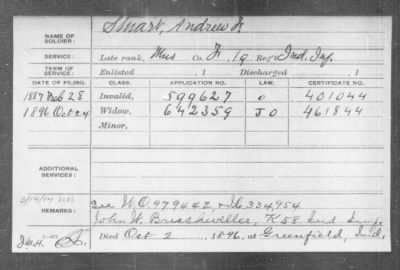 NAME OF SOLDIER: Stuart, Andrew F
SERVICE: Late rank, Mus Co. F, 19 Reg't Ind. Inf.
TERM OF SERVICE: Enlisted , 1 Discharged , 1
DATE OF FILING. CLASS. APPLICATION NO. LAW. CERTIFICATE NO.
1887 Feb 28 Invalid, 599627 O 401044
1896 Oct 24 Widow, 642359 J O 461844
Minor,
ADDITIONAL SERVICES:
REMARKS: See W.O 979442, 334,954
John W. K 58 Ind Inf.
Died Oct 2 1896, at Greenfield, Ind.